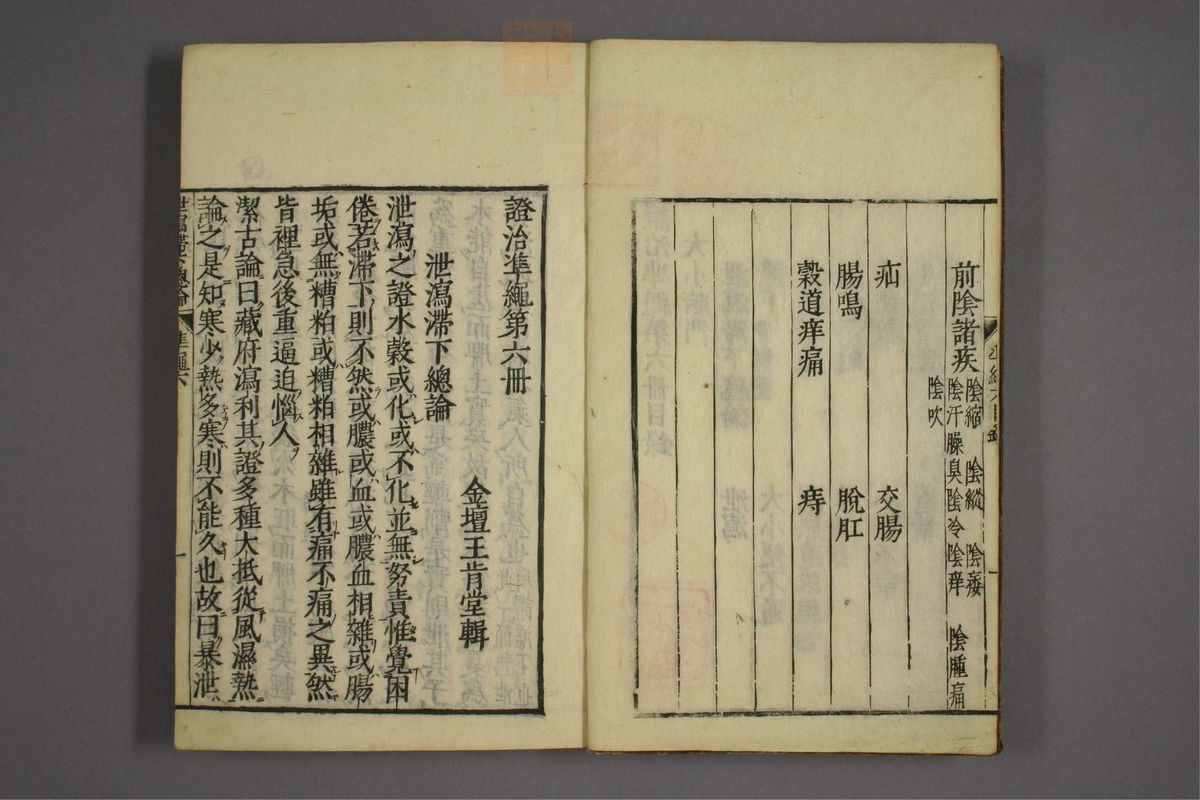 前陰諸疾 陰縮 陰縱 陰痿 陰汗臊臭陰冷陰痒 陰腫痛 陰吹
疝 交腸
腸鳴 脫肛
穀道痒痛 痔
證治準繩第六冊
金壇王肯堂輯
泄瀉滯下總論
泄瀉之證水榖或化或不化並無努責惟覺困
倦若滯下則不然或膿或血或膿血相雜或腸
垢或無糟粕或糟粕相雜雖有痛不痛之異然
皆裡急後重逼迫惱人
潔古論曰臓府瀉利其證多種大抵從風濕熱
論之是知寒少熱多寒則不能久也故曰暴泄
準繩六
一